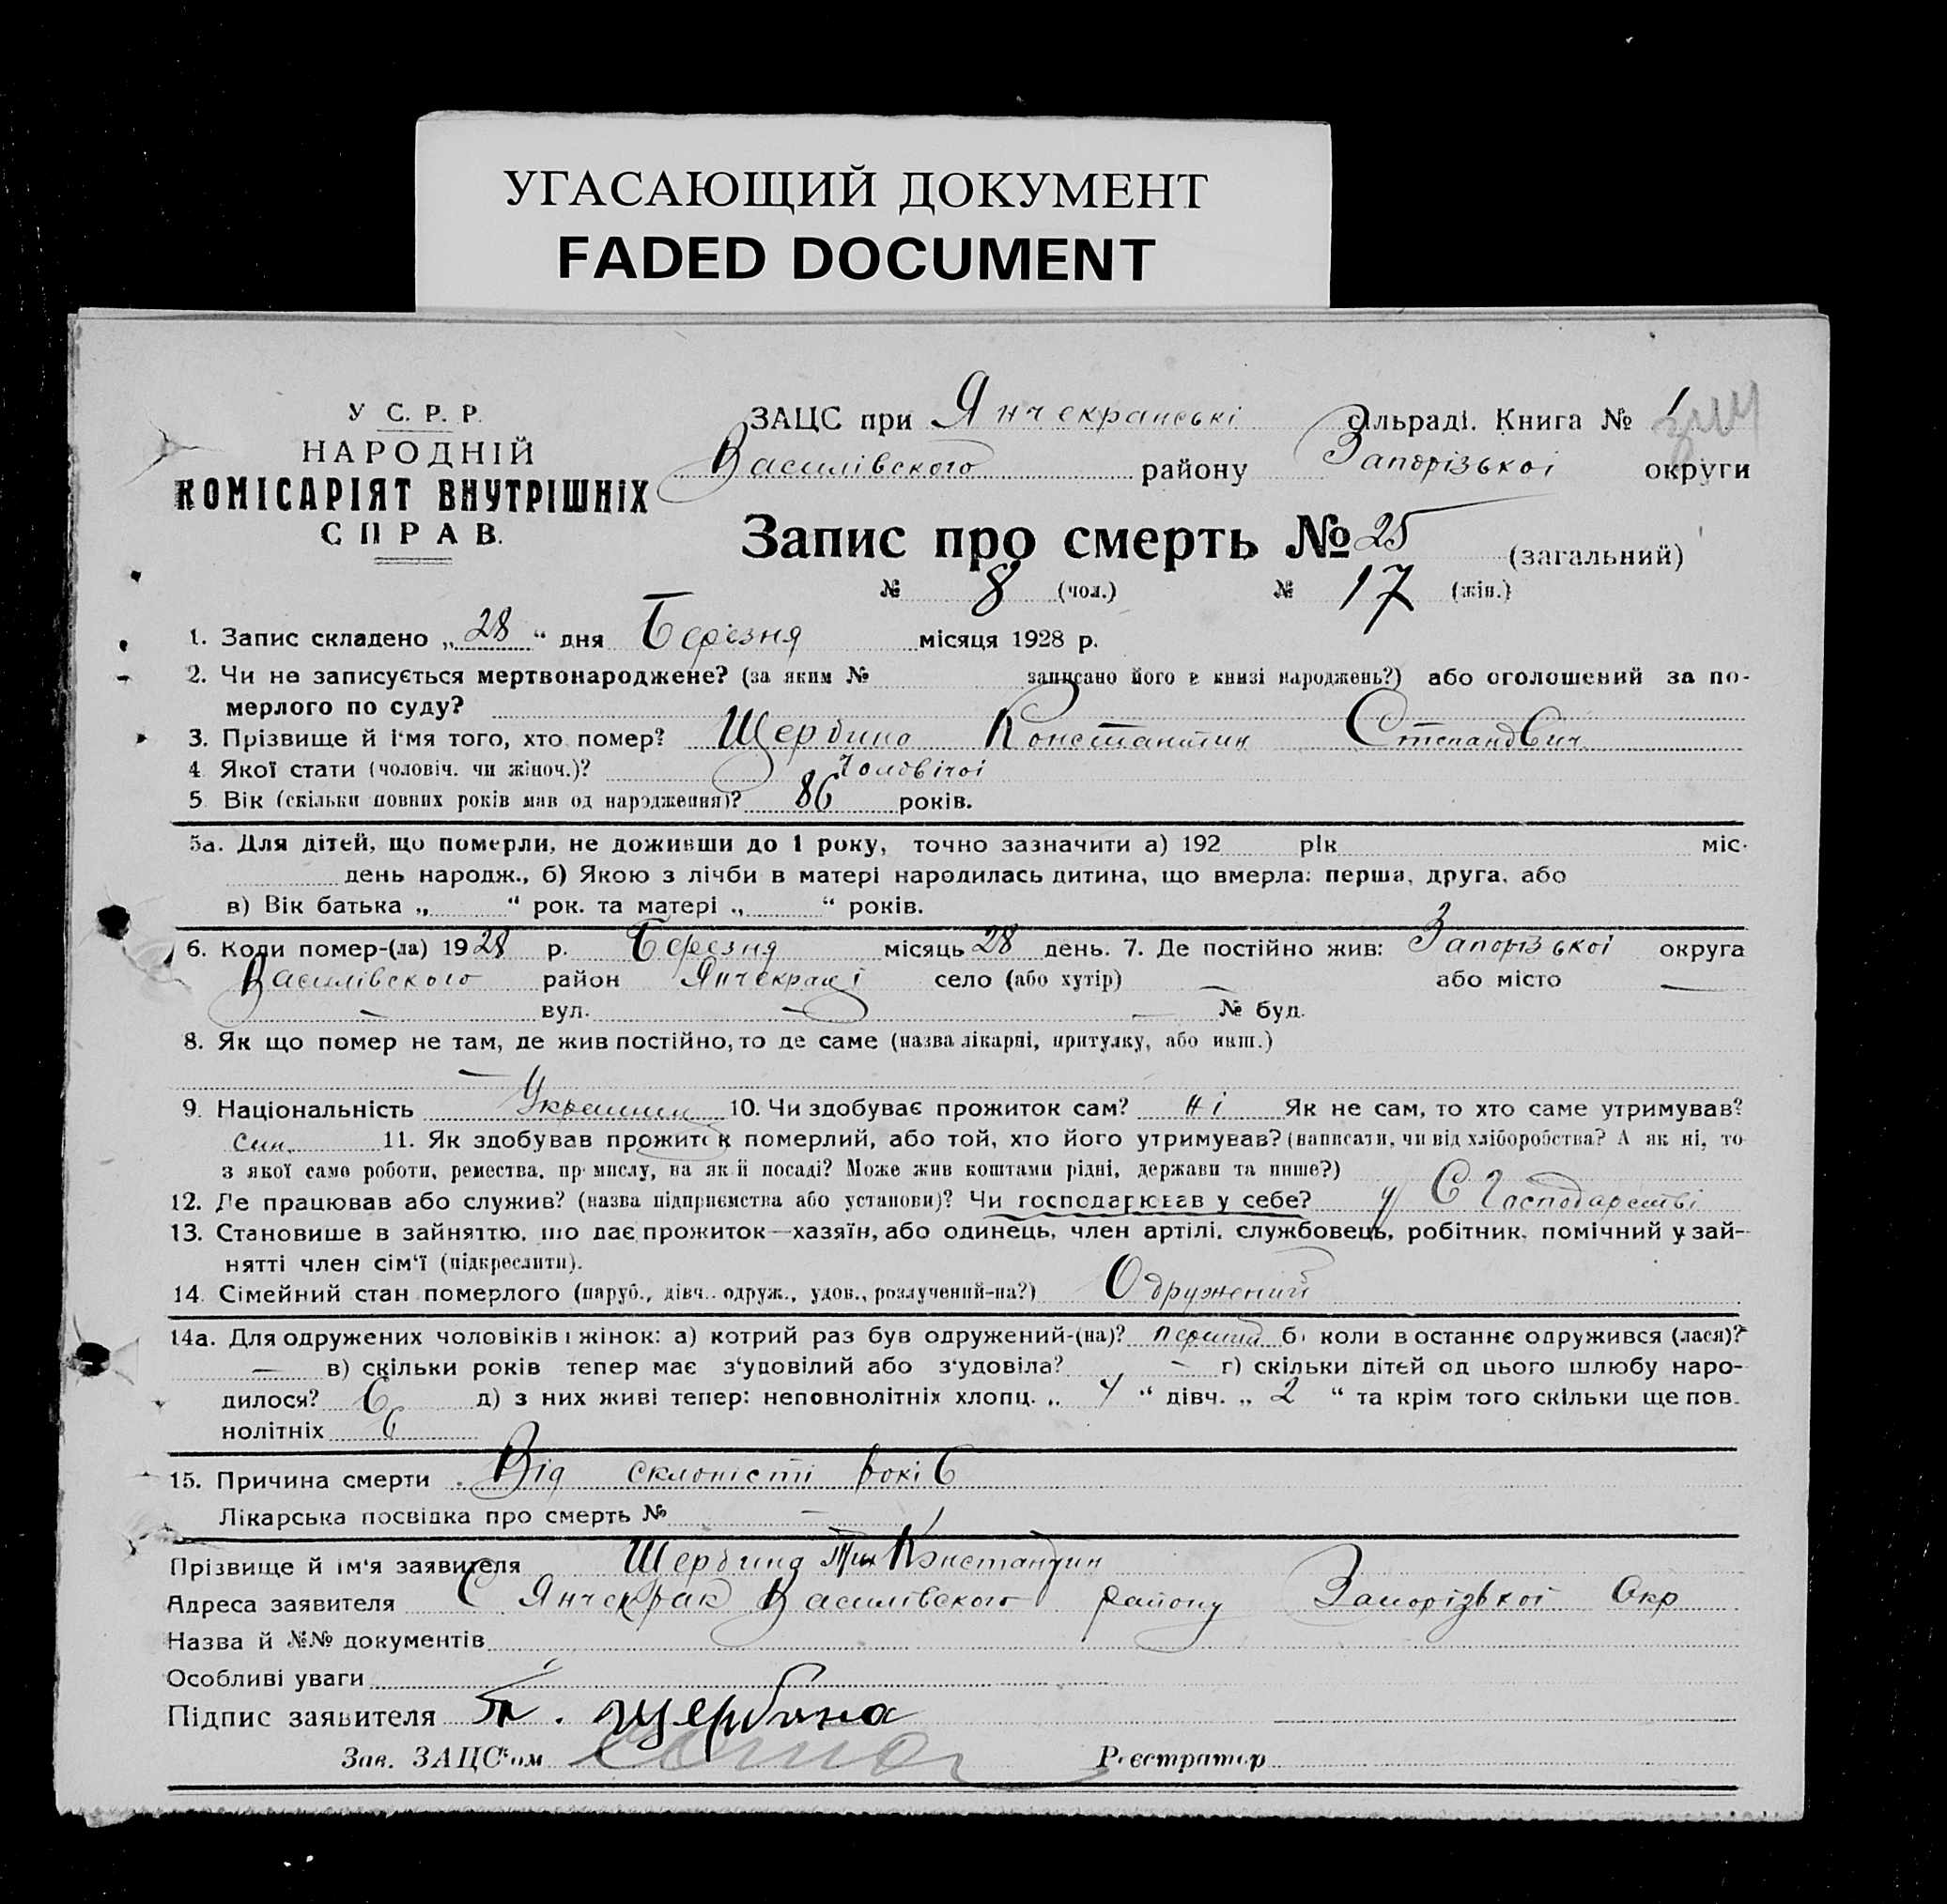 УГАСАЮЩИЙ ДОКУМЕНТ
FADED DOCUMENT
У С. Р. Р.
НАРОДНІЙ
КОМІСАРІЯТ ВНУТРІШНІХ
СПРАВ.
ЗАЦС при Янчекранські сільраді. Книга № 1
Василівского району Запорізькоі округи
Запис про смерть № 25 (загальний)
№ 8 (чол.) № 17 (жін.)
1. Запис складено „ 28 “ дня Березня місяця 1928 р.
2. Чи не записується мертвонароджене? (за яким № записано його в книзі народжень?) або оголошений за по-
мерлого по суду?
3. Прізвище й ім‘я того, хто помер? Щербино Константин Степанович
4 Якої стати (чоловіч. чи жіноч.)? Чоловічоі
5 Вік (скільки повних років мав од народження)? 86 років.
5а. Для дітей, що померли, не доживши до 1 року, точно зазначити а) 192 рік міс.
день народж., б) Якою з лічби в матері народилась дитина, що вмерла: перша, друга, або
в) Вік батька „ “ рок. та матері „ “ років.
6. Коли помер-(ла) 1928 р. Березня місяць 28 день. 7. Де постійно жив: Запорізькоі округа
Василівского район Янчекраці село (або хутір) — або місто —
— вул. — — № буд.
8. Як що помер не там, де жив постійно, то де саме (назва лікарні, притулку, або инш.)
—
9. Національність Украинец 10. Чи здобуває прожиток сам? ні Як не сам, то хто саме утримував?
син. 11. Як здобував прожиток померлий, або той, хто його утримував? (написати, чи від хліборобства? А як ні, то
з якої само роботи, ремества, промислу, на якій посаді? Може жив коштами рідні, держави та инше?)
12. Де працював або служив? (назва підприємства або установи)? Чи господарював у себе? у С Господарстві
13. Становище в зайняттю, що дає прожиток—хазяїн, або одинець, член артілі, службовець, робітник, помічний у зай-
нятті член сім‘ї (підкреслити).
14. Сімейний стан померлого (паруб., дівч. одруж., удов., розлучений-на?) Одружений
14а. Для одружених чоловіків і жінок: а) котрий раз був одружений-(на)? перший б) коли востаннє одружився (лася)?
— в) скільки років тепер має з‘удовілий або з‘удовіла? — г) скільки дітей од цього шлюбу наро-
дилося? 6 д) з них живі тепер: неповнолітніх хлопц. „ 4 “ дівч. „ 2 “ та крім того скільки ще пов.
нолітніх 6
15. Причина смерти Від склоности років
Лікарська посвідка про смерть № —
Прізвище й ім‘я заявителя Щербина Константин
Адреса заявителя С Янчекрак Василівского району Запорізькоі Окр
Назва й №№ документів
Особливі уваги
Підпис заявителя Щербина
Зав. ЗАЦС‘ом Реєстратор